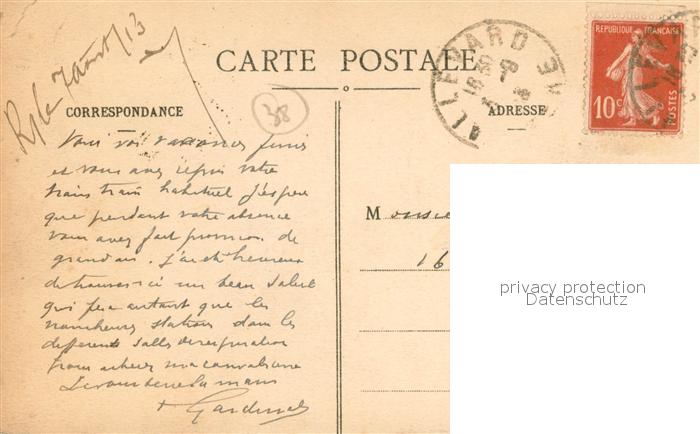 CARTE POSTALE
CORRESPONDANCE
ADRESSE
38
Rép le 7 août /13
ALLEVARD
REPUBLIQUE FRANÇAISE
10c
POSTES
Vous vos vacances finies
et vous avez repris votre
train train habituel J'espère
que pendant votre absence
vous avez fait provision de
grand air. J'ai été heureux
de trouver ici un beau soleil
qui fera autant que les
stations dans les
différentes salles d'inspiration
pour achever ma convalescence
Je vous serre la main
M
16
privacy protection
Datenschutz